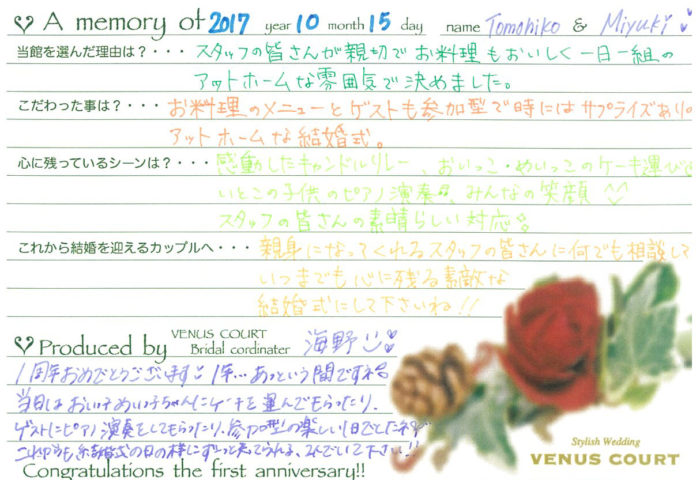 A memory of 2017 year 10 month 15 day name Tomohiko & Miyuki
当館を選んだ理由は？・・・スタッフの皆さんが親切でお料理もおいしく一日一組の
アットホームな雰囲気で決めました。
こだわった事は？・・・お料理のメニューとゲストも参加型で時にはサプライズありの
アットホームな結婚式。
心に残っているシーンは？・・・感動したキャンドルリレー、おいっこ・めいっこのケーキ運びと
いとこの子供のピアノ演奏♫、みんなの笑顔^^
スタッフの皆さんの素晴らしい対応
これから結婚を迎えるカップルへ・・・親身になってくれるスタッフの皆さんに何でも相談して
いつまでも心に残る素敵な
結婚式にして下さいね!!
Produced by VENUS COURT
Bridal cordinater 海野
1周年おめでとうございます 1年…あっという間ですね
当日はおいっ子めいっ子ちゃんにケーキを運んでもらったり、
ゲストにピアノ演奏をしてもらったり、参加型の楽しい1日でしたネ
これからも結婚式の日の様にずっと 下さい!!
Congratulations the first anniversary!!
Stylish Wedding
VENUS COURT